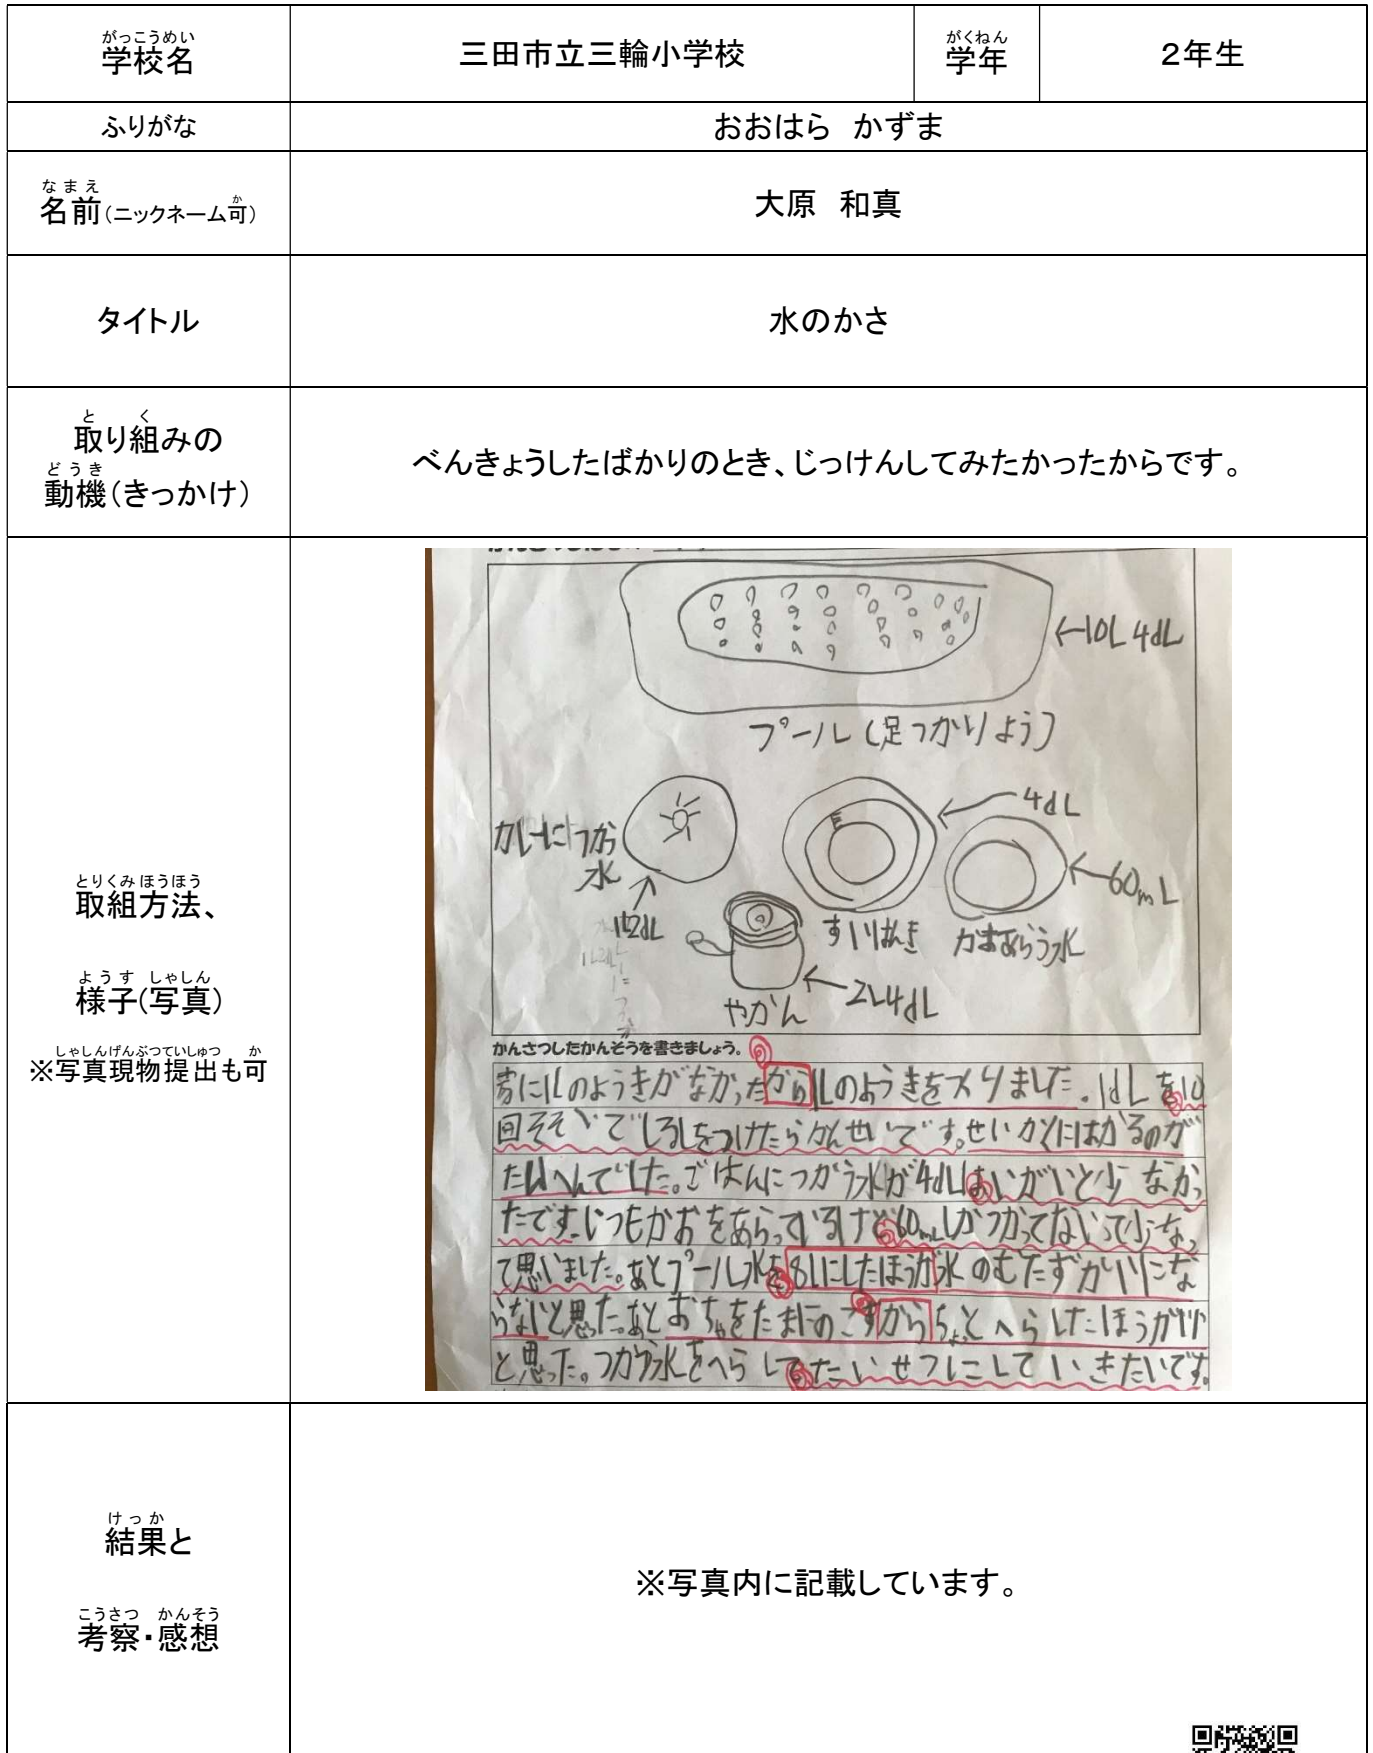 がっこうめい
学校名
三田市立三輪小学校
がくねん
学年
2年生
ふりがな
おおはら かずま
なまえ
か
名前(ニックネーム可)
大原 和真
タイトル
水のかさ
と く
取り組みの
どうき
動機(きっかけ)
べんきょうしたばかりのとき、じっけんしてみたかったからです。
とりくみほうほう
取組方法、
ようす しゃしん
様子(写真)
しゃしんげんぶつていしゅつ か
※写真現物提出も可
←10L 4dL
プール(足つかりよう)
カレーにつかう
水
1L2dL
4dL
すいはんき
60mL
かおあらう水
2L4dL
やかん
かんさつしたかんそうを書きましょう。
に1Lのようきがなかったから1Lのようきをつくりました。1dLを10
回そそいでしるしをつけたらかんせいです。せいかくにはかるのが
たいへんでした。ごはんにつかう水が4dLはいがいと少なかっ
たです。いつもかおをあらっているけど60mLしかつかってないって少ないなっ
て思いました。あとプール水を8Lにしたほうが水のむだずかいにな
らないと思った。あとおちゃをたまにのこすからちょっとへらしたほうがいい
と思った。つかう水をへらしてたいせつにしていきたいです。
けっか
結果と
こうさつ かんそう
考察・感想
※写真内に記載しています。